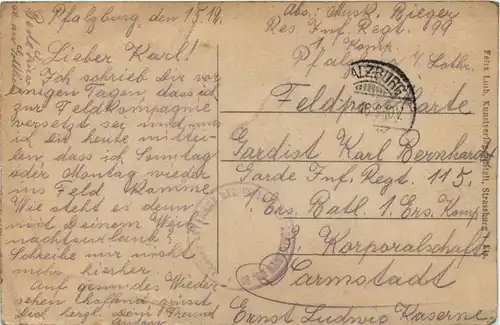 Pfalzburg, den 15.12.
Lieber Karl!
Ich schrieb Dir vor
einigen Tagen, dass ich
zur Feldkompagnie
versetzt sei und muss
ich Dir heute mittei-
len, dass ich Sonntag
oder Montag wieder
ins Feld komme.
Wie steht es denn
mit Deinem Weih-
nachtsurlaub?
Schreibe nur nicht
mehr hierher.
Auf gesundes Wieder-
sehen hoffend grüsst
Dich herzl. Dein Freund
Abs: Musk. Rieger
Res. Inf. Regt. 99
1. Komp.
Pfalzburg i/ Lothr.
Feldpostkarte
Gardist Karl Bernhardt
Garde Inf. Regt. 115.
1. Ers. Batl. 1. Ers. Komp
Korporalschaft
Darmstadt
Ernst Ludwig Kaserne
Felix Luib, Kunstverlagsanstalt, Strassburg i. Els.